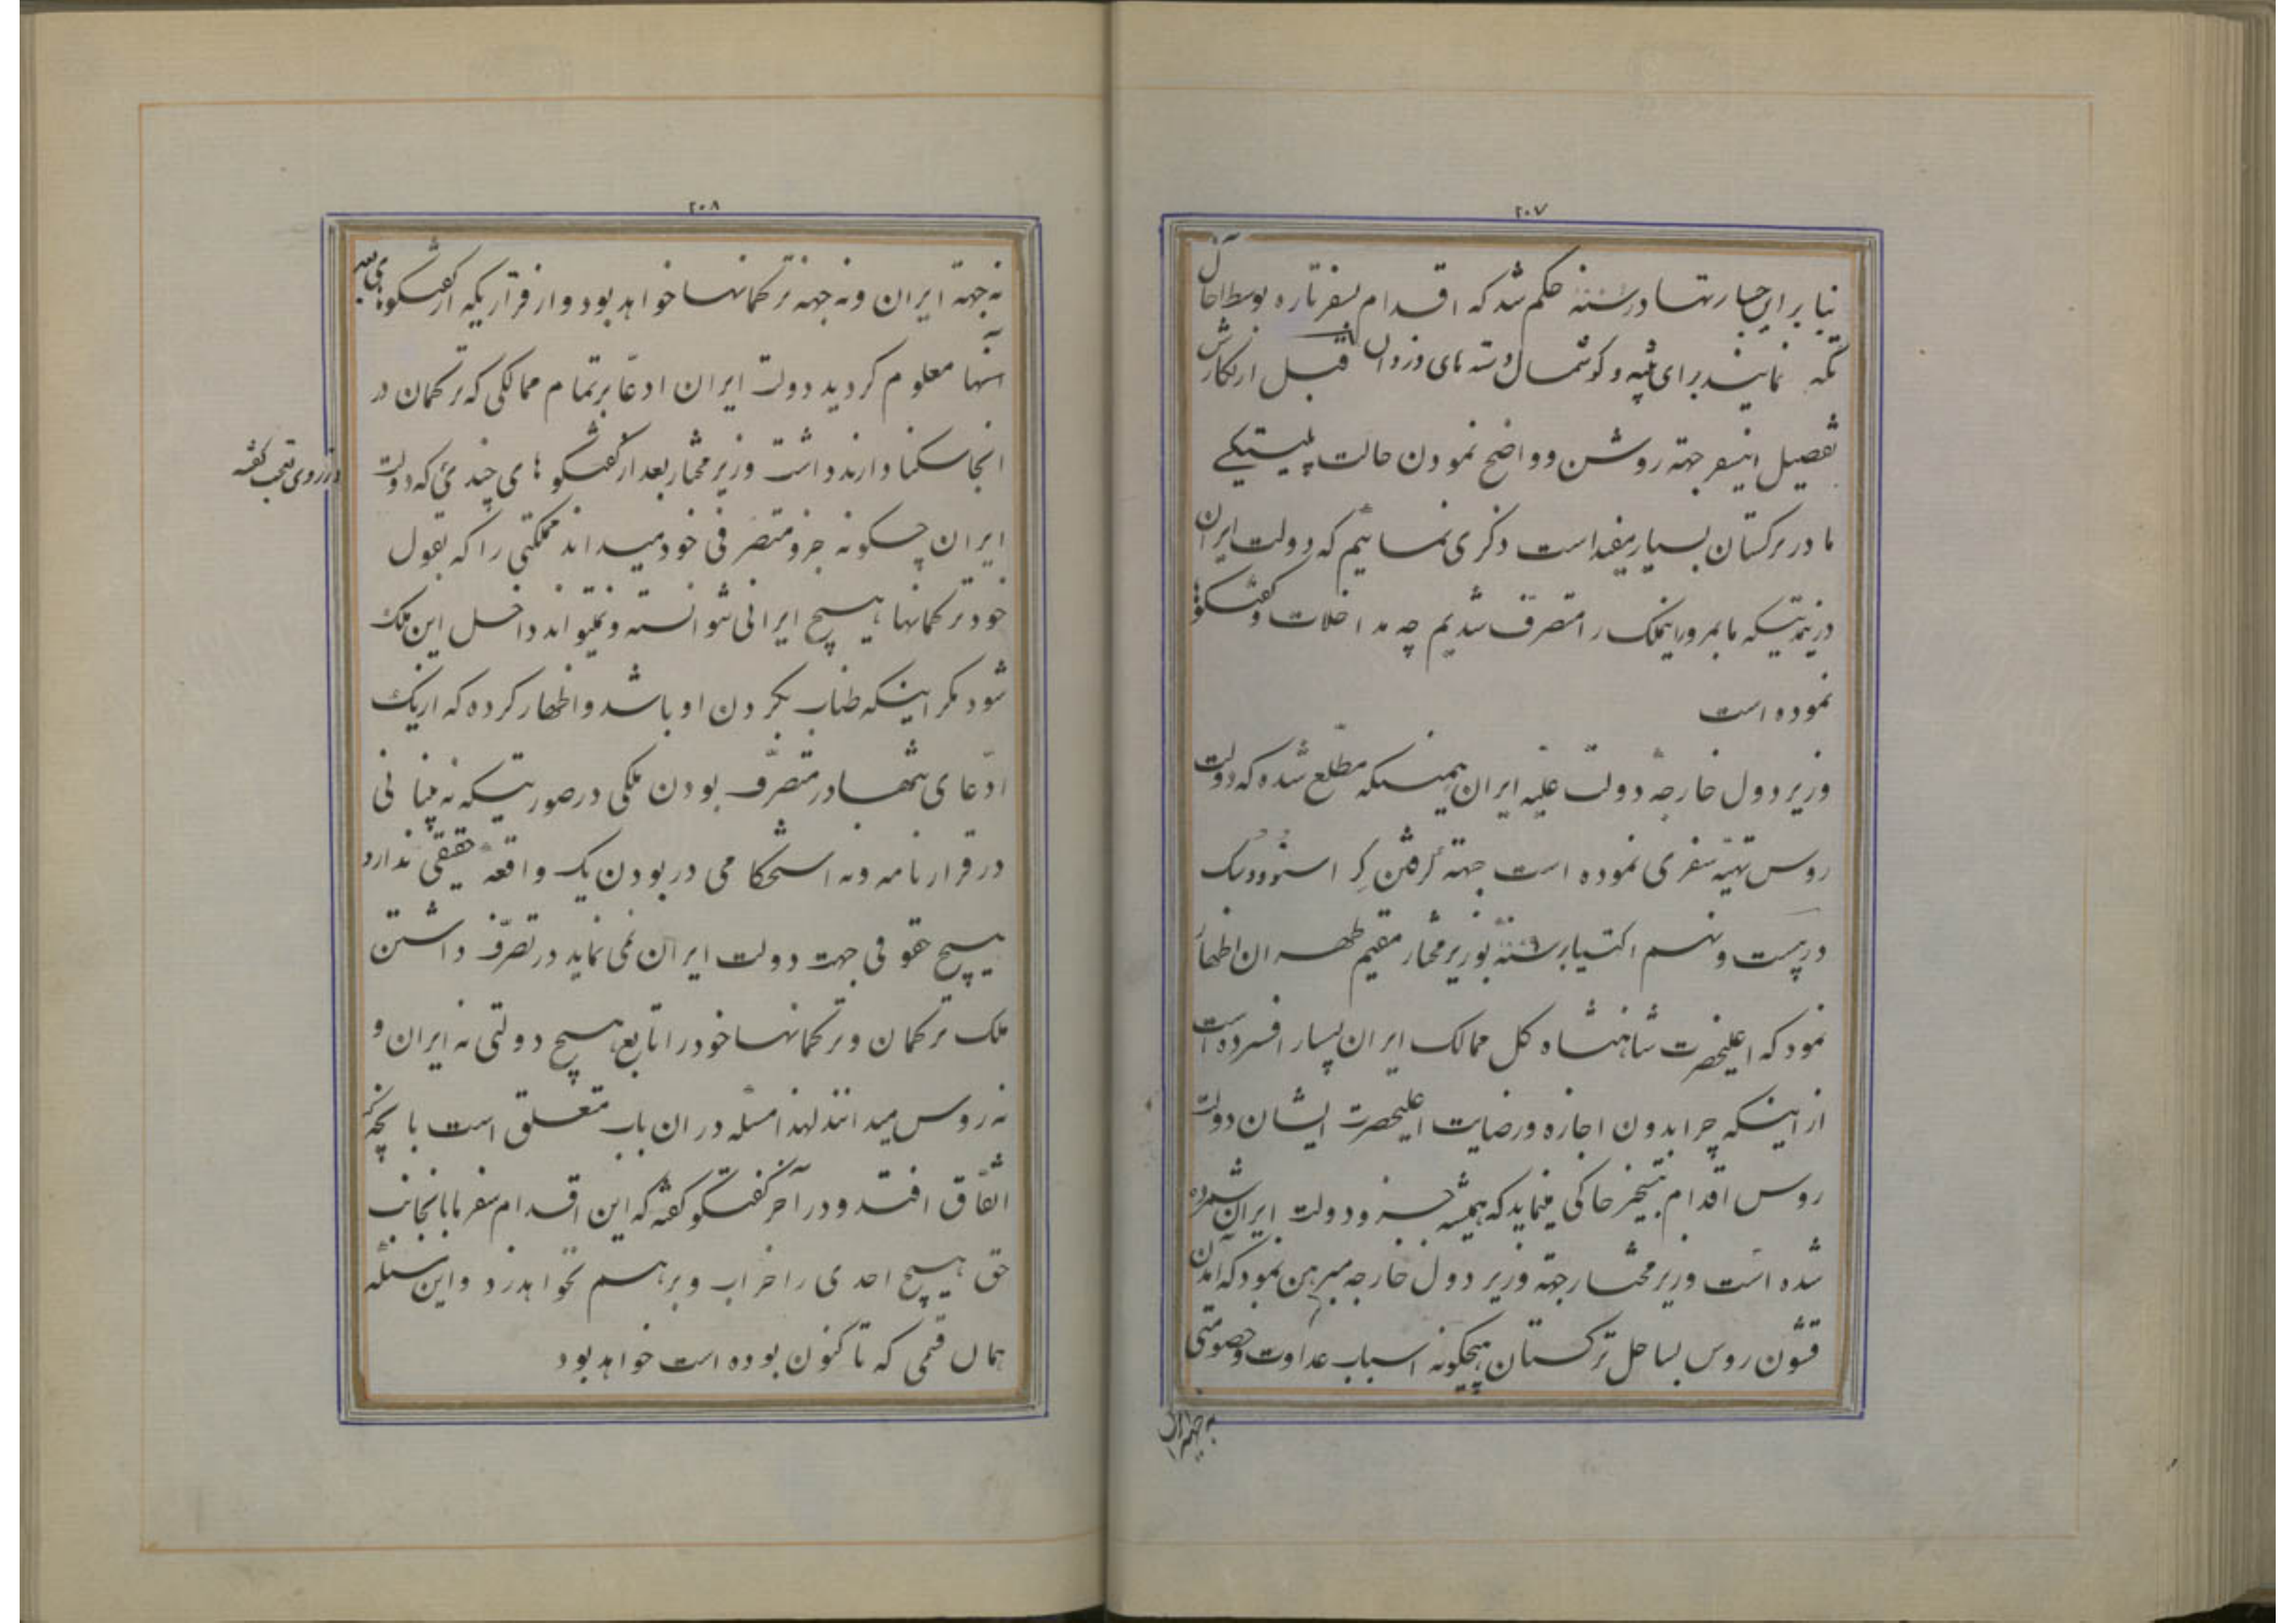 ۲۰۷
بنا بر این جسارتها در سنه حکم شد که اقدام بسفر تازه بوسط اخال
تکه نمایند برای تنبیه و گوشمال دسته های دزدان قبل از نگارش
تفصیل اینسفر جهته روشن و واضح نمودن حالت پلیتیکی
ما در ترکستان بسیار مفید است ذکری نمائیم که دولت ایران
در مدتیکه ما بمرور اینملک را متصرف شدیم چه مداخلات و گفتگوها
نموده است
وزیر دول خارجهٔ دولت علیّه ایران همینکه مطلع شده که دولت
روس تهیّه سفری نموده است جهته گرفتن کراسنوودسک
در بیست و نهم اکتیابر سنه بوزیر مختار مقیم طهران اظهار
نمود که اعلیحضرت شاهنشاه کل ممالک ایران بسیار افسرده است
از اینکه چرا بدون اجازه و رضایت اعلیحضرت ایشان دولت
روس اقدام بتسخیر خاکی مینماید که همیشه جزو دولت ایران شمرده
شده است وزیر مختار جهته وزیر دول خارجه مبرهن نمود که آمدن
قشون روس بساحل ترکستان هیچگونه اسباب عداوت و خصومتی
نه جهته ایران
۲۰۸
نه جهته ایران و نه جهته ترکمانها خواهد بود و از قراریکه از گفتگوهای بعد
آنها معلوم گردید دولت ایران ادعا بر تمام ممالکی که ترکمان در
انجا سکنا دارند داشت وزیر مختار بعد از گفتگوهای چندی که دولت
از روی تعجب گفته
ایران چگونه جزو متصرفی خود میداند مملکتی را که بقول
خود ترکمانها هیچ ایرانی نتوانسته و نمیتواند داخل این ملک
شود مگر اینکه طناب بگردن او باشد و اظهار کرده که از یک
ادّعای تنها در متصرّف بودن ملکی در صورتیکه نه مبنائی
در قرارنامه و نه استحکامی در بودن یک واقعهٔ حقیقی ندارد
هیچ حقوقی جهت دولت ایران نمی نماید در تصرّف داشتن
ملک ترکمان و ترکمانها خود را تابع هیچ دولتی نه ایران و
نه روس میدانند لهذا مسئله در ان باب متعلق است بانچه که
اتّفاق افتد و در آخر گفتگو گفته که این اقدام سفر ما بانجانب
حق هیچ احدی را خراب و برهم نخواهد زد و این مسئله
همان قسمی که تا کنون بوده است خواهد بود